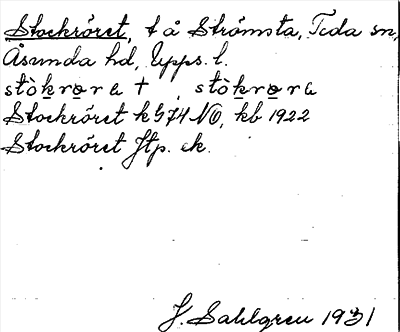 Stockröret, t å Strömsta, Teda sn,
Åsunda hd, Upps. l.
stòkrœra t , stòkrœra
Stockröret k G 74 NO, kb 1922
Stockröret Jtp. ek.
J. Sahlgren 1931